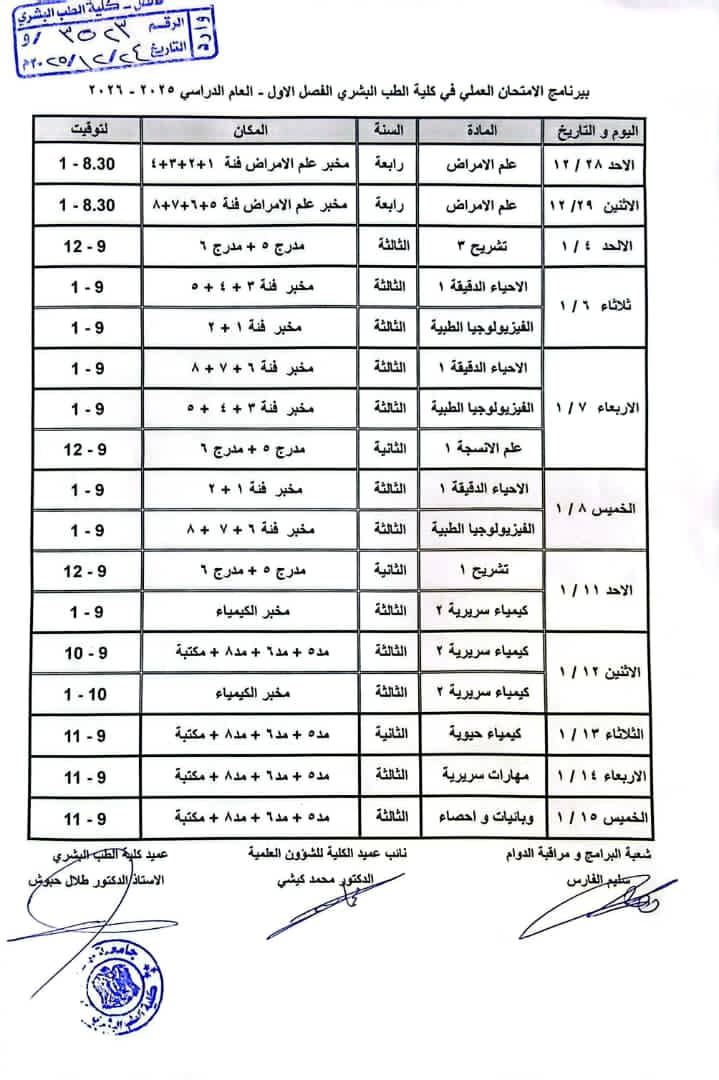 كلية الطب البشري
الرقم ٣٥٢٣ / و
التاريخ ٢٠٢٥/١٢/٢٤م
وارد
بيرنامج الامتحان العملي في كلية الطب البشري الفصل الاول - العام الدراسي ٢٠٢٥ - ٢٠٢٦
اليوم و التاريخ المادة السنة المكان لتوقيت
الاحد ٢٨ / ١٢ علم الامراض رابعة مخبر علم الامراض فئة ١+٢+٣+٤ 8.30 - 1
الاثنين ٢٩/ ١٢ علم الامراض رابعة مخبر علم الامراض فئة ٥+٦+٧+٨ 8.30 - 1
الالحد ٤ / ١ تشريح ٣ الثالثة مدرج ٥ + مدرج ٦ 9 - 12
ثلاثاء ٦ / ١ الاحياء الدقيقة ١ الثالثة مخبر فئة ٣ + ٤ + ٥ 9 - 1
الفيزيولوجيا الطبية الثالثة مخبر فئة ١ + ٢ 9 - 1
الاربعاء ٧ / ١ الاحياء الدقيقة ١ الثالثة مخبر فئة ٦ + ٧ + ٨ 9 - 1
الفيزيولوجيا الطبية الثالثة مخبر فئة ٣ + ٤ + ٥ 9 - 1
علم الانسجة ١ الثانية مدرج ٥ + مدرج ٦ 9 - 12
الخميس ٨ / ١ الاحياء الدقيقة ١ الثالثة مخبر فئة ١ + ٢ 9 - 1
الفيزيولوجيا الطبية الثالثة مخبر فئة ٦ + ٧ + ٨ 9 - 1
الاحد ١١ / ١ تشريح ١ الثانية مدرج ٥ + مدرج ٦ 9 - 12
كيمياء سريرية ٢ الثالثة مخبر الكيمياء 9 - 1
الاثنين ١٢ / ١ كيمياء سريرية ٢ الثالثة مد٥ + مد٦ + مد٨ + مكتبة 9 - 10
كيمياء سريرية ٢ الثالثة مخبر الكيمياء 10 - 1
الثلاثاء ١٣ / ١ كيمياء حيوية الثانية مد٥ + مد٦ + مد٨ + مكتبة 9 - 11
الاربعاء ١٤ / ١ مهارات سريرية الثالثة مد٥ + مد٦ + مد٨ + مكتبة 9 - 11
الخميس ١٥ / ١ وبانيات و احصاء الثالثة مد٥ + مد٦ + مد٨ + مكتبة 9 - 11
شعبة البرامج و مراقبة الدوام نائب عميد الكلية للشؤون العلمية عميد كلية الطب البشري
سليم الفارس الدكتور محمد كبشي الاستاذ الدكتور طلال حبوش
جامعة
كلية الطب البشري